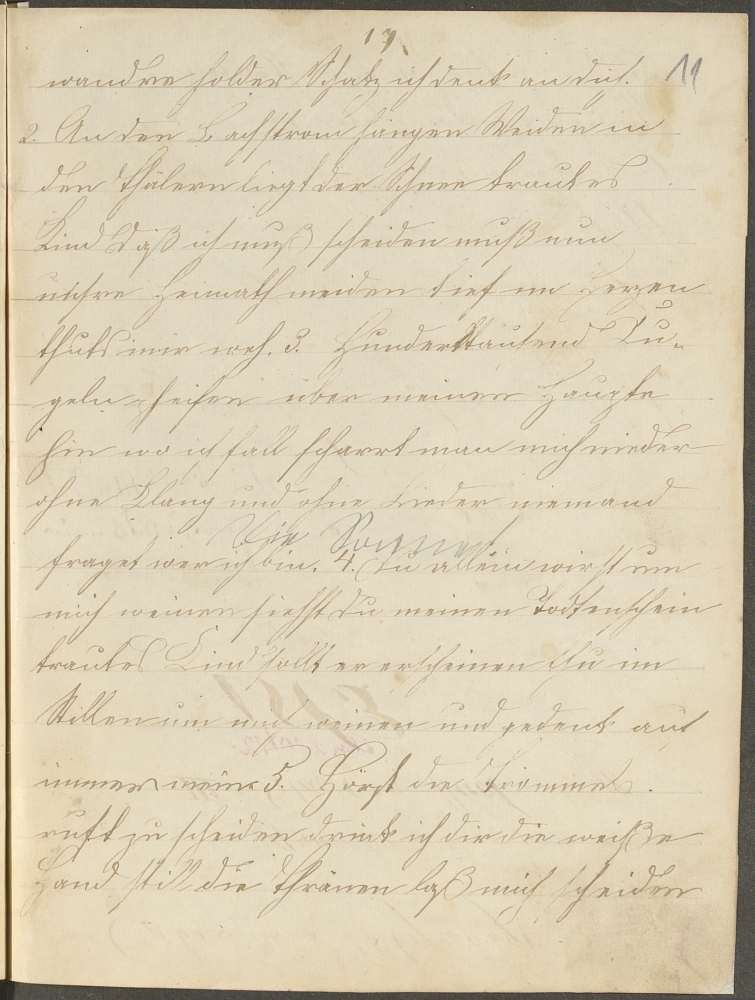 17.
11
wandre holder Schatz ich denk an dich.
2. An den Bachstrom hängen Weiden in
den Thälern liegt der Schnee trautes
Kind daß ich muß scheiden muß nun
unsre Heimath meiden tief im Herzen
thuts mir weh. 3. Hunderttausend Ku-
geln pfeifen über meinem Haupte
hin wo ich fall scharrt man mich nieder
ohne Klang und ohne Lieder niemand
fraget wer ich bin. 4. Du allein wirst um
mich weinen siehst du meinen Todtenschein
trautes Kind sollt er erscheinen thu im
Stillen um mich weinen und gedenk auch
immer mein 5. Hörst die Trommel
ruft zu scheiden drück ich dir die weiße
Hand still die Thränen laß mich scheiden